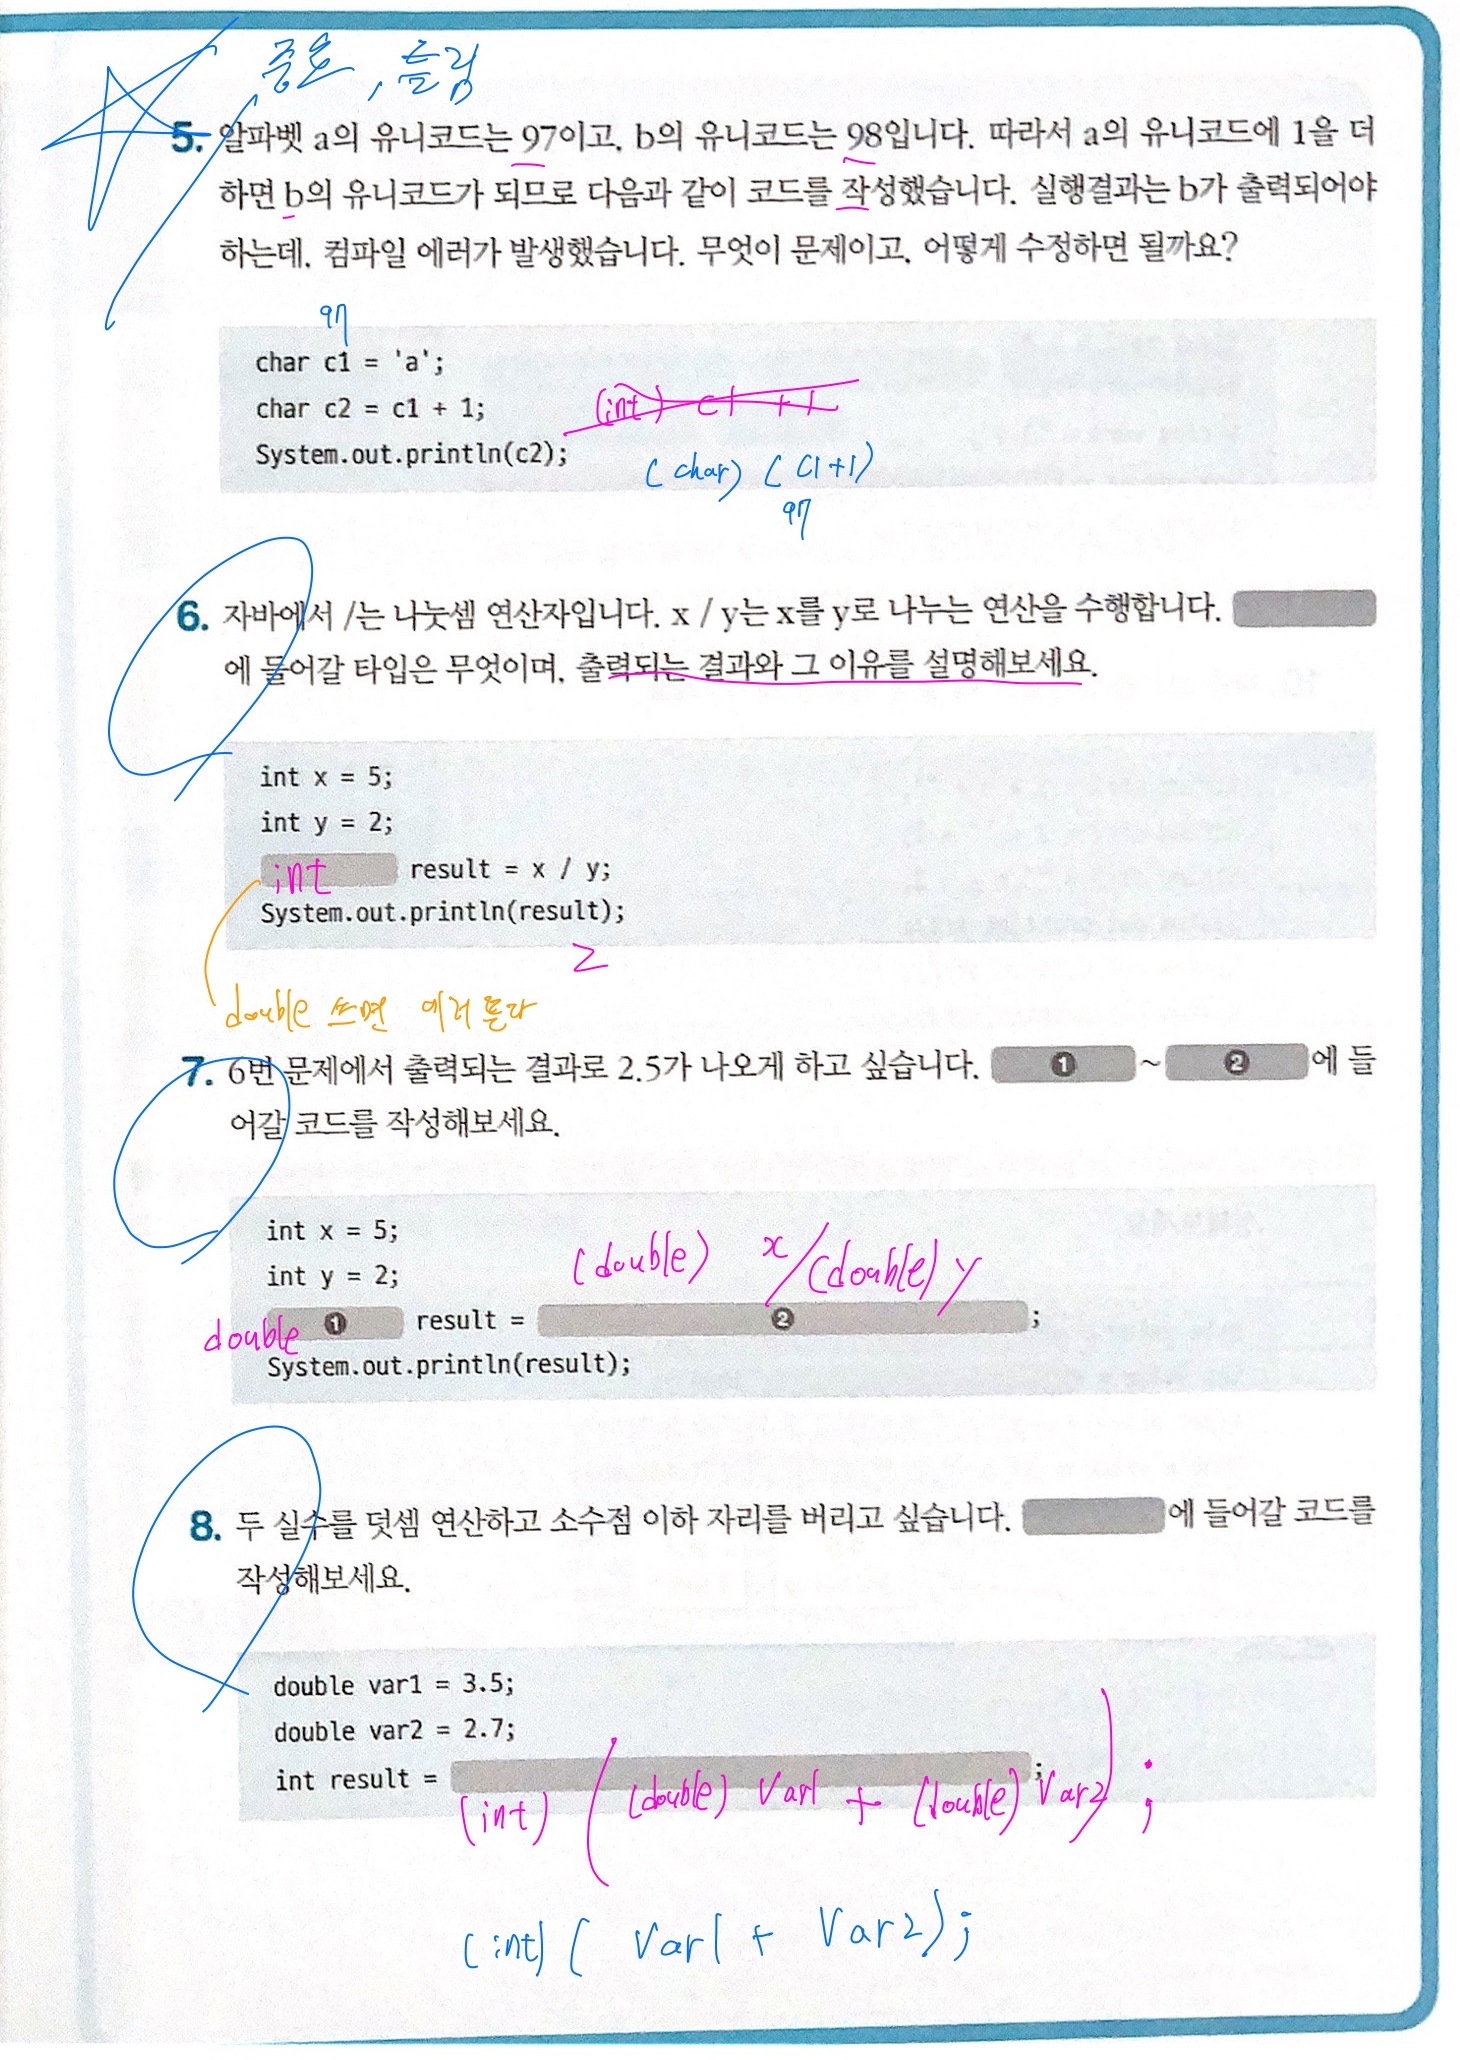 중요, 틀림
5. 알파벳 a의 유니코드는 97이고, b의 유니코드는 98입니다. 따라서 a의 유니코드에 1을 더
하면 b의 유니코드가 되므로 다음과 같이 코드를 작성했습니다. 실행결과는 b가 출력되어야
하는데, 컴파일 에러가 발생했습니다. 무엇이 문제이고, 어떻게 수정하면 될까요?
97
char c1 = 'a';
char c2 = c1 + 1; (int) c1 + 1
System.out.println(c2); (char) (c1+1)
97
6. 자바에서 /는 나눗셈 연산자입니다. x / y는 x를 y로 나누는 연산을 수행합니다.
에 들어갈 타입은 무엇이며, 출력되는 결과와 그 이유를 설명해보세요.
int x = 5;
int y = 2;
int result = x / y;
System.out.println(result);
2
double 쓰면 에러 뜬다
7. 6번 문제에서 출력되는 결과로 2.5가 나오게 하고 싶습니다. ❶ ~ ❷ 에 들
어갈 코드를 작성해보세요.
int x = 5;
int y = 2; (double) x/(double) y
double ❶ result = ❷ ;
System.out.println(result);
8. 두 실수를 덧셈 연산하고 소수점 이하 자리를 버리고 싶습니다. 에 들어갈 코드를
작성해보세요.
double var1 = 3.5;
double var2 = 2.7;
int result = ;
(int) ((double) Var1 + (double) Var2);
(int) ( Var1 + Var2);